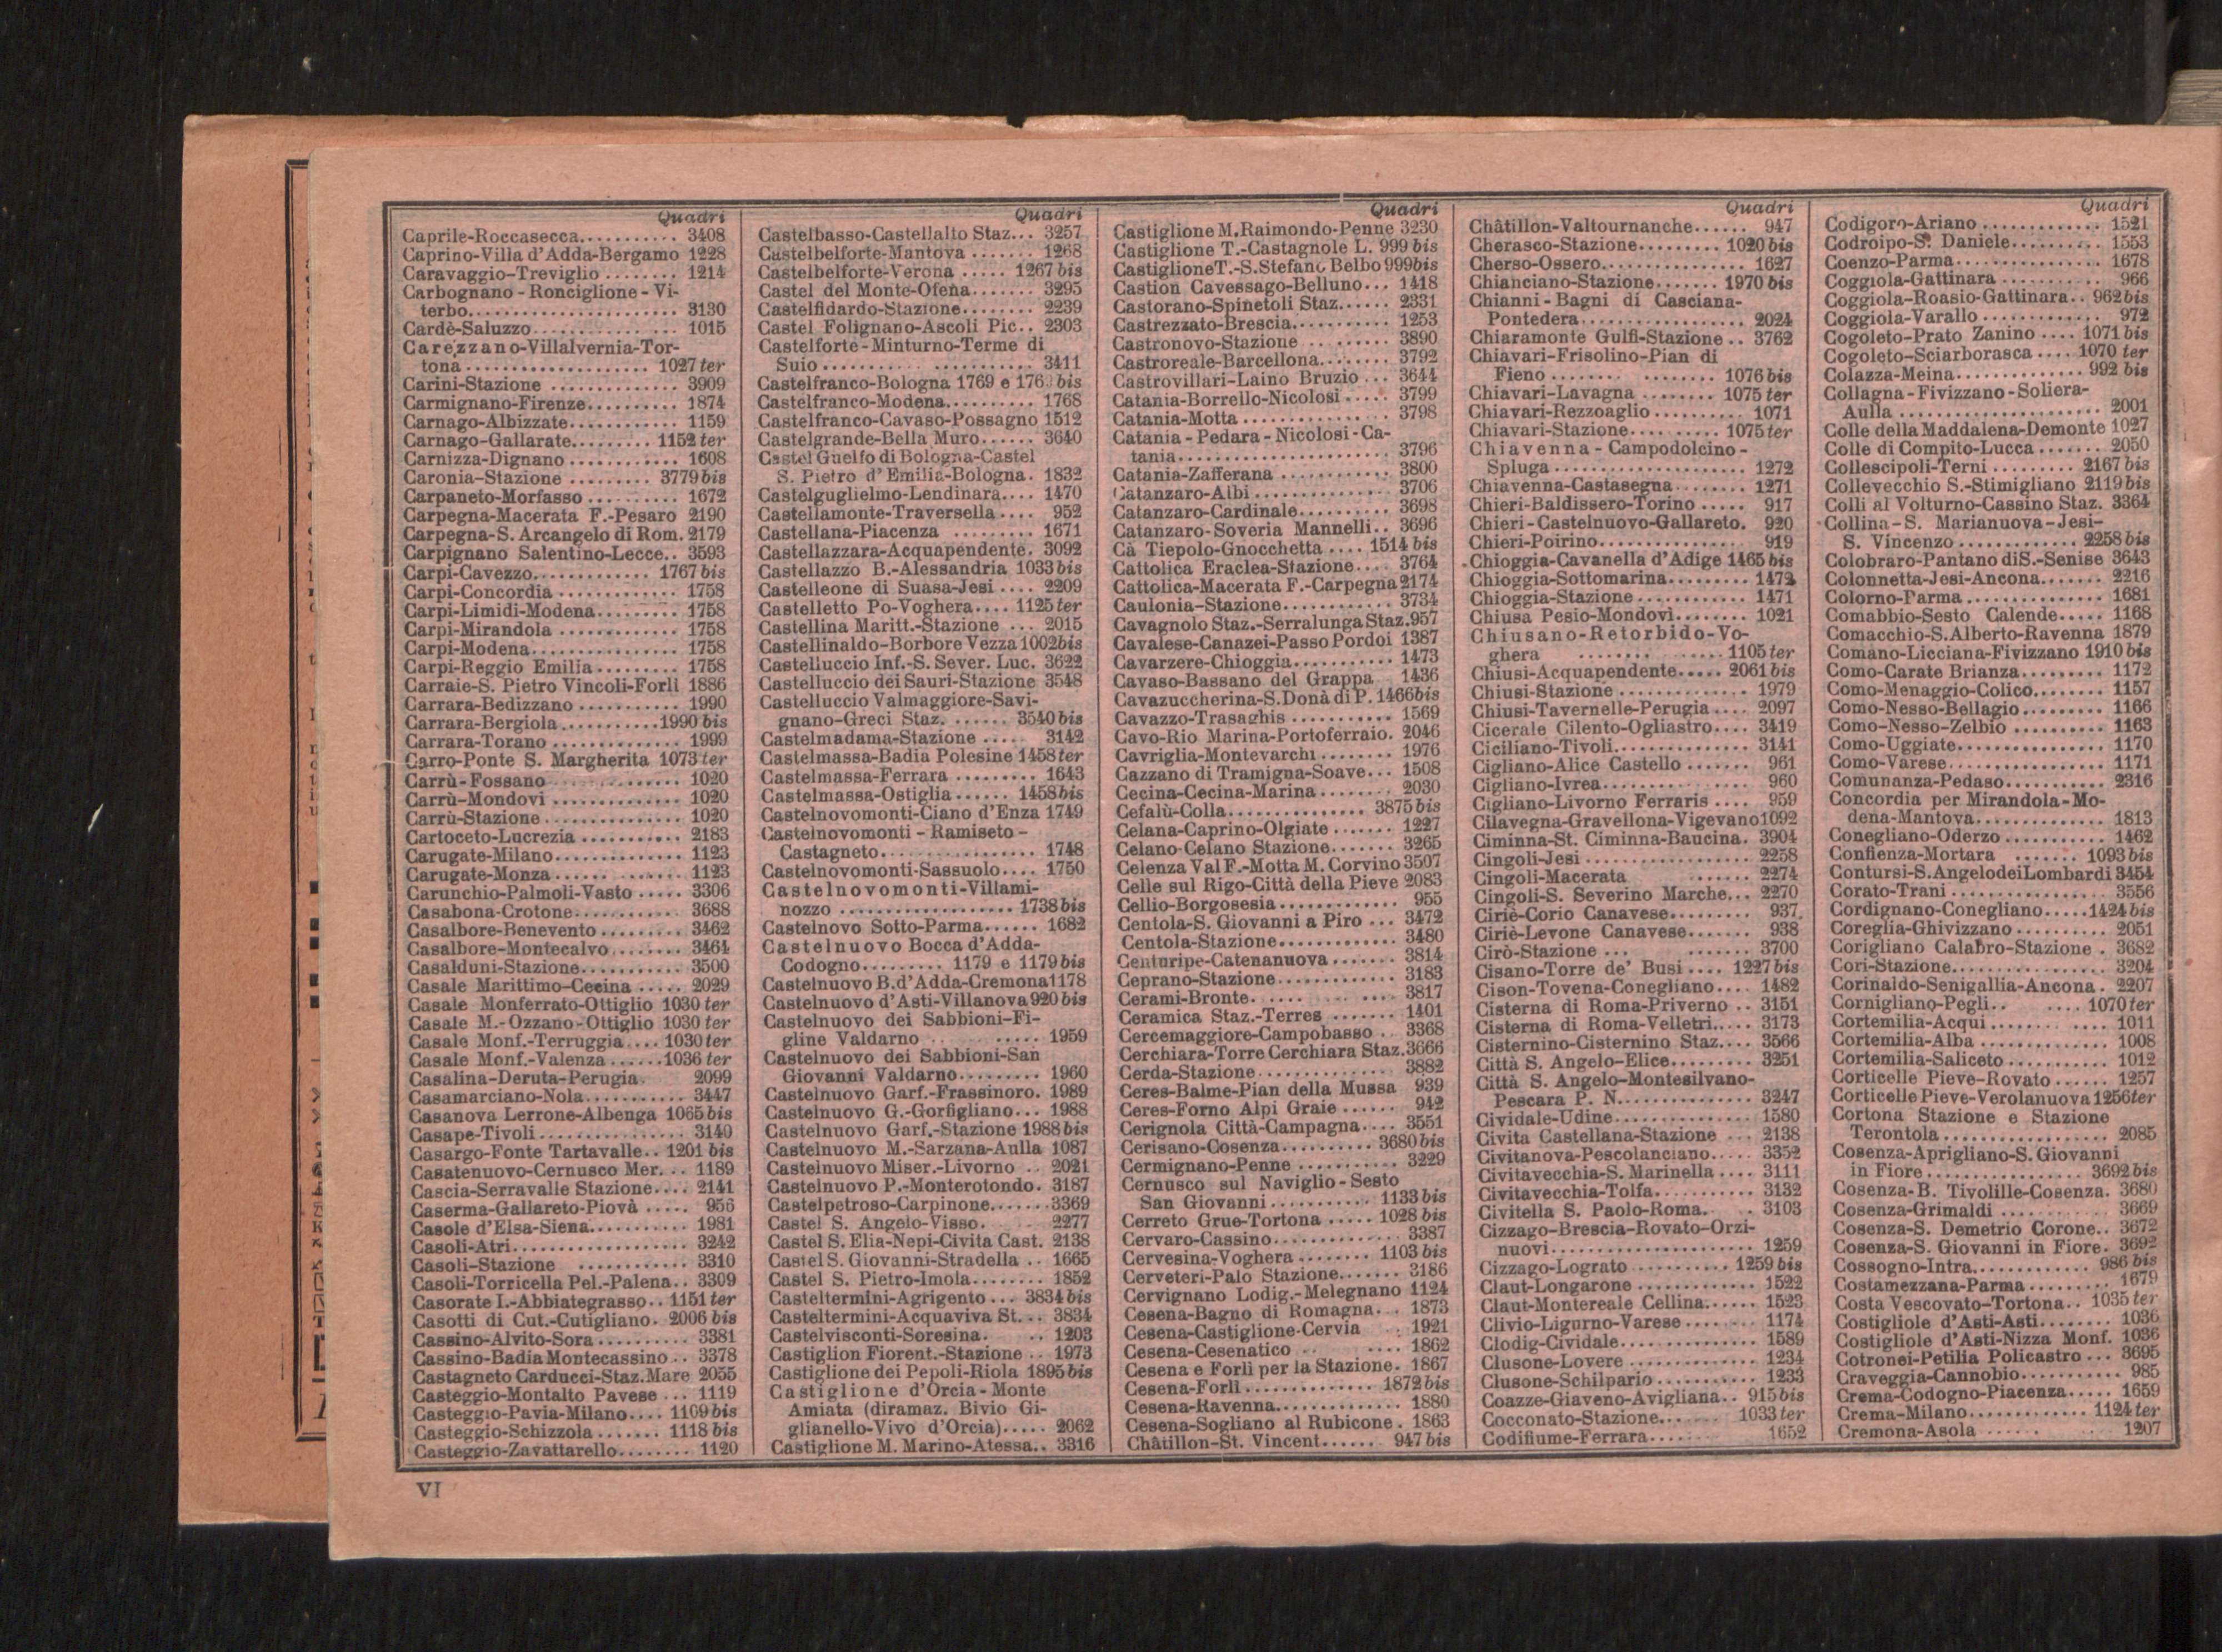 Quadri
Caprile-Roccasecca........... 3408
Caprino-Villa d'Adda-Bergamo 1228
Caravaggio-Treviglio ........ 1214
Carbognano - Ronciglione - Vi-
terbo....................... 3130
Cardè-Saluzzo................ 1015
Carezzano-Villalvernia-Tor-
tona .................... 1027 ter
Carini-Stazione .............. 3909
Carmignano-Firenze.......... 1874
Carnago-Albizzate............ 1159
Carnago-Gallarate......... 1152 ter
Carnizza-Dignano ............ 1608
Caronia-Stazione ......... 3779 bis
Carpaneto-Morfasso .......... 1672
Carpegna-Macerata F.-Pesaro 2190
Carpegna-S. Arcangelo di Rom. 2179
Carpignano Salentino-Lecce.. 3593
Carpi-Cavezzo............. 1767 bis
Carpi-Concordia ............. 1758
Carpi-Limidi-Modena......... 1758
Carpi-Mirandola ............. 1758
Carpi-Modena................ 1758
Carpi-Reggio Emilia......... 1758
Carraie-S. Pietro Vincoli-Forlì 1886
Carrara-Bedizzano ........... 1990
Carrara-Bergiola ...........1990 bis
Carrara-Torano .............. 1999
Carro-Ponte S. Margherita 1073 ter
Carrù-Fossano ............... 1020
Carrù-Mondovì .............. 1020
Carrù-Stazione ............... 1020
Cartoceto-Lucrezia ........... 2183
Carugate-Milano.............. 1123
Carugate-Monza ...... ....... 1123
Carunchio-Palmoli-Vasto ..... 3306
Casabona-Crotone............ 3688
Casalbore-Benevento ......... 3462
Casalbore-Montecalvo........ 3464
Casalduni-Stazione........... 3500
Casale Marittimo-Cecina ..... 2029
Casale Monferrato-Ottiglio 1030 ter
Casale M.-Ozzano-Ottiglio 1030 ter
Casale Monf.-Terruggia.... 1030 ter
Casale Monf.-Valenza ......1036 ter
Casalina-Deruta-Perugia. 2099
Casamarciano-Nola........... 3447
Casanova Lerrone-Albenga 1065 bis
Casape-Tivoli................ 3140
Casargo-Fonte Tartavalle.. 1201 bis
Casatenuovo-Cernusco Mer... 1189
Cascia-Serravalle Stazione.... 2141
Caserma-Gallareto-Piovà ..... 956
Casole d'Elsa-Siena........... 1981
Casoli-Atri................... 3242
Casoli-Stazione ............ 3310
Casoli-Torricella Pel.-Palena.. 3309
Casorate I.-Abbiategrasso.. 1151 ter
Casotti di Cut.-Cutigliano. 2006 bis
Cassino-Alvito-Sora .......... 3381
Cassino-Badia Montecassino .. 3378
Castagneto Carducci-Staz.Mare 2055
Casteggio-Montalto Pavese ... 1119
Casteggio-Pavia-Milano.... 1109 bis
Casteggio-Schizzola ....... 1118 bis
Casteggio-Zavattarello........ 1120
Quadri
Castelbasso-Castellalto Staz... 3257
Castelbelforte-Mantova ....... 1268
Castelbelforte-Verona ..... 1267 bis
Castel del Monte-Ofena....... 3295
Castelfidardo-Stazione........ 2239
Castel Folignano-Ascoli Pic.. 2303
Castelforte-Minturno-Terme di
Suio .......... ........... 3411
Castelfranco-Bologna 1769 e 1769 bis
Castelfranco-Modena.......... 1768
Castelfranco-Cavaso-Possagno 1512
Castelgrande-Bella Muro...... 3640
Castel Guelfo di Bologna-Castel
S. Pietro d'Emilia-Bologna. 1832
Castelguglielmo-Lendinara.... 1470
Castellamonte-Traversella .... 952
Castellana-Piacenza ......... 1671
Castellazzara-Acquapendente. 3092
Castellazzo B.-Alessandria 1033 bis
Castelleone di Suasa-Jesi .... 2209
Castelletto Po-Voghera.... 1125 ter
Castellina Maritt.-Stazione ... 2015
Castellinaldo-Borbore Vezza 1002bis
Castelluccio Inf.-S. Sever. Luc. 3622
Castelluccio dei Sauri-Stazione 3548
Castelluccio Valmaggiore-Savi-
gnano-Greci Staz. ...... 3540 bis
Castelmadama-Stazione ..... 3142
Castelmassa-Badia Polesine 1458 ter
Castelmassa-Ferrara ......... 1643
Castelmassa-Ostiglia ...... 1458bis
Castelnovomonti-Ciano d'Enza 1749
Castelnovomonti - Ramiseto -
Castagneto................. 1748
Castelnovomonti-Sassuolo.... 1750
Castelnovomonti-Villami-
nozzo ................... 1738 bis
Castelnovo Sotto-Parma...... 1682
Castelnuovo Bocca d'Adda-
Codogno......... 1179 e 1179 bis
Castelnuovo B.d'Adda-Cremona1178
Castelnuovo d'Asti-Villanova 920 bis
Castelnuovo dei Sabbioni-Fi-
gline Valdarno .. ..... 1959
Castelnuovo dei Sabbioni-San
Giovanni Valdarno......... 1960
Castelnuovo Garf.-Frassinoro. 1989
Castelnuovo G.-Gorfigliano... 1988
Castelnuovo Garf.-Stazione 1988 bis
Castelnuovo M.-Sarzana-Aulla 1087
Castelnuovo Miser.-Livorno .. 2021
Castelnuovo P.-Monterotondo. 3187
Castelpetroso-Carpinone.......3369
Castel S. Angelo-Visso. 2277
Castel S. Elia-Nepi-Civita Cast. 2138
Castel S. Giovanni-Stradella .. 1665
Castel S. Pietro-Imola........ 1852
Casteltermini-Agrigento ... 3834 bis
Casteltermini-Acquaviva St... 3834
Castelvisconti-Soresina. .. 1203
Castiglion Fiorent.-Stazione .. 1973
Castiglione dei Pepoli-Riola 1895 bis
Castiglione d'Orcia-Monte
Amiata (diramaz. Bivio Gi-
glianello-Vivo d'Orcia)..... 2062
Castiglione M. Marino-Atessa.. 3316
Quadri
Castiglione M.Raimondo-Penne 3230
Castiglione T.-Castagnole L. 999 bis
Castiglione T.-S.Stefano Belbo 999bis
Castion Cavessago-Belluno... 1418
Castorano-Spinetoli Staz...... 2331
Castrezzato-Brescia........... 1253
Castronovo-Stazione .. ...... 3890
Castroreale-Barcellona........ 3792
Castrovillari-Laino Bruzio ... 3644
Catania-Borrello-Nicolosi ..... 3799
Catania-Motta ............... 3798
Catania - Pedara - Nicolosi - Ca-
tania....................... 3796
Catania-Zafferana ............ 3800
Catanzaro-Albi ............... 3706
Catanzaro-Cardinale.......... 3698
Catanzaro-Soveria Mannelli.. 3696
Cà Tiepolo-Gnocchetta .... 1514 bis
Cattolica Eraclea-Stazione.... 3764
Cattolica-Macerata F.-Carpegna 2174
Caulonia-Stazione............ 3734
Cavagnolo Staz.-Serralunga Staz.957
Cavalese-Canazei-Passo Pordoi 1387
Cavarzere-Chioggia........... 1473
Cavaso-Bassano del Grappa 1436
Cavazuccherina-S.Donà di P. 1466bis
Cavazzo-Trasaghis ........... 1569
Cavo-Rio Marina-Portoferraio. 2046
Cavriglia-Montevarchi........ 1976
Cazzano di Tramigna-Soave... 1508
Cecina-Cecina-Marina ........ 2030
Cefalù-Colla............... 3875 bis
Celana-Caprino-Olgiate ....... 1227
Celano-Celano Stazione....... 3265
Celenza Val F.-Motta M. Corvino 3507
Celle sul Rigo-Città della Pieve 2083
Cellio-Borgosesia ............. 955
Centola-S. Giovanni a Piro ... 3472
Centola-Stazione............. 3480
Centuripe-Catenanuova....... 3814
Ceprano-Stazione............. 3183
Cerami-Bronte. ..... .... 3817
Ceramica Staz.-Terres ....... 1401
Cercemaggiore-Campobasso .. 3368
Cerchiara-Torre Cerchiara Staz.3666
Cerda-Stazione............... 3882
Ceres-Balme-Pian della Mussa 939
Ceres-Forno Alpi Graie ...... 942
Cerignola Città-Campagna.... 3551
Cerisano-Cosenza.......... 3680 bis
Cermignano-Penne ........... 3229
Cernusco sul Naviglio - Sesto
San Giovanni ........... 1133 bis
Cerreto Grue-Tortona ..... 1028 bis
Cervaro-Cassino.............. 3387
Cervesina-Voghera ........ 1103 bis
Cerveteri-Palo Stazione....... 3186
Cervignano Lodig.-Melegnano 1124
Cesena-Bagno di Romagna... 1873
Cesena-Castiglione-Cervia .. 1921
Cesena-Cesenatico .. .... 1862
Cesena e Forlì per la Stazione. 1867
Cesena-Forlì.............. 1872 bis
Cesena-Ravenna............. 1880
Cesena-Sogliano al Rubicone . 1863
Châtillon-St. Vincent...... 947 bis
Quadri
Châtillon-Valtournanche...... 947
Cherasco-Stazione......... 1020 bis
Cherso-Ossero................ 1627
Chianciano-Stazione....... 1970 bis
Chianni - Bagni di Casciana-
Pontedera.................. 2024
Chiaramonte Gulfi-Stazione .. 3762
Chiavari-Frisolino-Pian di
Fieno ........ ........ 1076 bis
Chiavari-Lavagna ........ 1075 ter
Chiavari-Rezzoaglio .......... 1071
Chiavari-Stazione.......... 1075 ter
Chiavenna - Campodolcino -
Spluga ..................... 1272
Chiavenna-Castasegna........ 1271
Chieri-Baldissero-Torino ..... 917
Chieri-Castelnuovo-Gallareto. 920
Chieri-Poirino................ 919
Chioggia-Cavanella d'Adige 1465 bis
Chioggia-Sottomarina......... 1472
Chioggia-Stazione ............ 1471
Chiusa Pesio-Mondovì........ 1021
Chiusano-Retorbido-Vo-
ghera ........ ...... 1105 ter
Chiusi-Acquapendente..... 2061 bis
Chiusi-Stazione .............. 1979
Chiusi-Tavernelle-Perugia .... 2097
Cicerale Cilento-Ogliastro.... 3419
Ciciliano-Tivoli............... 3141
Cigliano-Alice Castello ....... 961
Cigliano-Ivrea................ 960
Cigliano-Livorno Ferraris .... 959
Cilavegna-Gravellona-Vigevano1092
Ciminna-St. Ciminna-Baucina. 3904
Cingoli-Jesi .................. 2258
Cingoli-Macerata ....... 2274
Cingoli-S. Severino Marche... 2270
Ciriè-Corio Canavese......... 937
Ciriè-Levone Canavese....... 938
Cirò-Stazione ... ....... 3700
Cisano-Torre de' Busi .... 1227 bis
Cison-Tovena-Conegliano.... 1482
Cisterna di Roma-Priverno .. 3151
Cisterna di Roma-Velletri..... 3173
Cisternino-Cisternino Staz.... 3566
Città S. Angelo-Elice......... 3251
Città S. Angelo-Montesilvano-
Pescara P. N.............. 3247
Cividale-Udine............... 1580
Civita Castellana-Stazione ... 2138
Civitanova-Pescolanciano..... 3352
Civitavecchia-S. Marinella .... 3111
Civitavecchia-Tolfa........... 3132
Civitella S. Paolo-Roma.. . 3103
Cizzago-Brescia-Rovato-Orzi-
nuovi...................... 1259
Cizzago-Lograto .......... 1259 bis
Claut-Longarone ............. 1522
Claut-Montereale Cellina...... 1523
Clivio-Ligurno-Varese ........ 1174
Clodig-Cividale............... 1589
Clusone-Lovere .............. 1234
Clusone-Schilpario ........... 1233
Coazze-Giaveno-Avigliana.. 915 bis
Cocconato-Stazione....... 1033 ter
Codifiume-Ferrara....... 1652
Quadri
Codigoro-Ariano ............. 1521
Codroipo-S. Daniele.......... 1553
Coenzo-Parma ................ 1678
Coggiola-Gattinara ............ 966
Coggiola-Roasio-Gattinara.. 962 bis
Coggiola-Varallo ............. 972
Cogoleto-Prato Zanino .... 1071 bis
Cogoleto-Sciarborasca .... 1070 ter
Colazza-Meina.............. 992 bis
Collagna - Fivizzano - Soliera-
Aulla ..................... 2001
Colle della Maddalena-Demonte 1027
Colle di Compito-Lucca....... 2050
Collescipoli-Terni ......... 2167 bis
Collevecchio S.-Stimigliano 2119 bis
Colli al Volturno-Cassino Staz. 3364
Collina - S. Marianuova - Jesi-
S. Vincenzo ............. 2258 bis
Colobraro-Pantano di S.-Senise 3643
Colonnetta-Jesi-Ancona....... 2216
Colorno-Parma ............... 1681
Comabbio-Sesto Calende..... 1168
Comacchio-S.Alberto-Ravenna 1879
Comano-Licciana-Fivizzano 1910 bis
Como-Carate Brianza......... 1172
Como-Menaggio-Colico........ 1157
Como-Nesso-Bellagio ......... 1166
Como-Nesso-Zelbio .......... 1163
Como-Uggiate................ 1170
Como-Varese................. 1171
Comunanza-Pedaso........... 2316
Concordia per Mirandola-Mo-
dena-Mantova.............. 1813
Conegliano-Oderzo ........... 1462
Confienza-Mortara ....... 1093 bis
Contursi-S.AngelodeiLombardi 3454
Corato-Trani ................. 3556
Cordignano-Conegliano.....1424 bis
Coreglia-Ghivizzano .......... 2051
Corigliano Calabro-Stazione . 3682
Cori-Stazione................. 3204
Corinaldo-Senigallia-Ancona . 2207
Cornigliano-Pegli.. .... 1070 ter
Cortemilia-Acqui ........ .... 1011
Cortemilia-Alba .............. 1008
Cortemilia-Saliceto ........... 1012
Corticelle Pieve-Rovato ...... 1257
Corticelle Pieve-Verolanuova 1256ter
Cortona Stazione e Stazione
Terontola.................. 2085
Cosenza-Aprigliano-S. Giovanni
in Fiore ................. 3692 bis
Cosenza-B. Tivolille-Cosenza. 3680
Cosenza-Grimaldi ............ 3669
Cosenza-S. Demetrio Corone.. 3672
Cosenza-S. Giovanni in Fiore. 3692
Cossogno-Intra.............. 986 bis
Costamezzana-Parma ......... 1679
Costa Vescovato-Tortona.. 1035 ter
Costigliole d'Asti-Asti........ 1036
Costigliole d'Asti-Nizza Monf. 1036
Cotronei-Petilia Policastro ... 3695
Craveggia-Cannobio........... 985
Crema-Codogno-Piacenza..... 1659
Crema-Milano............. 1124 ter
Cremona-Asola ...... 1207
VI